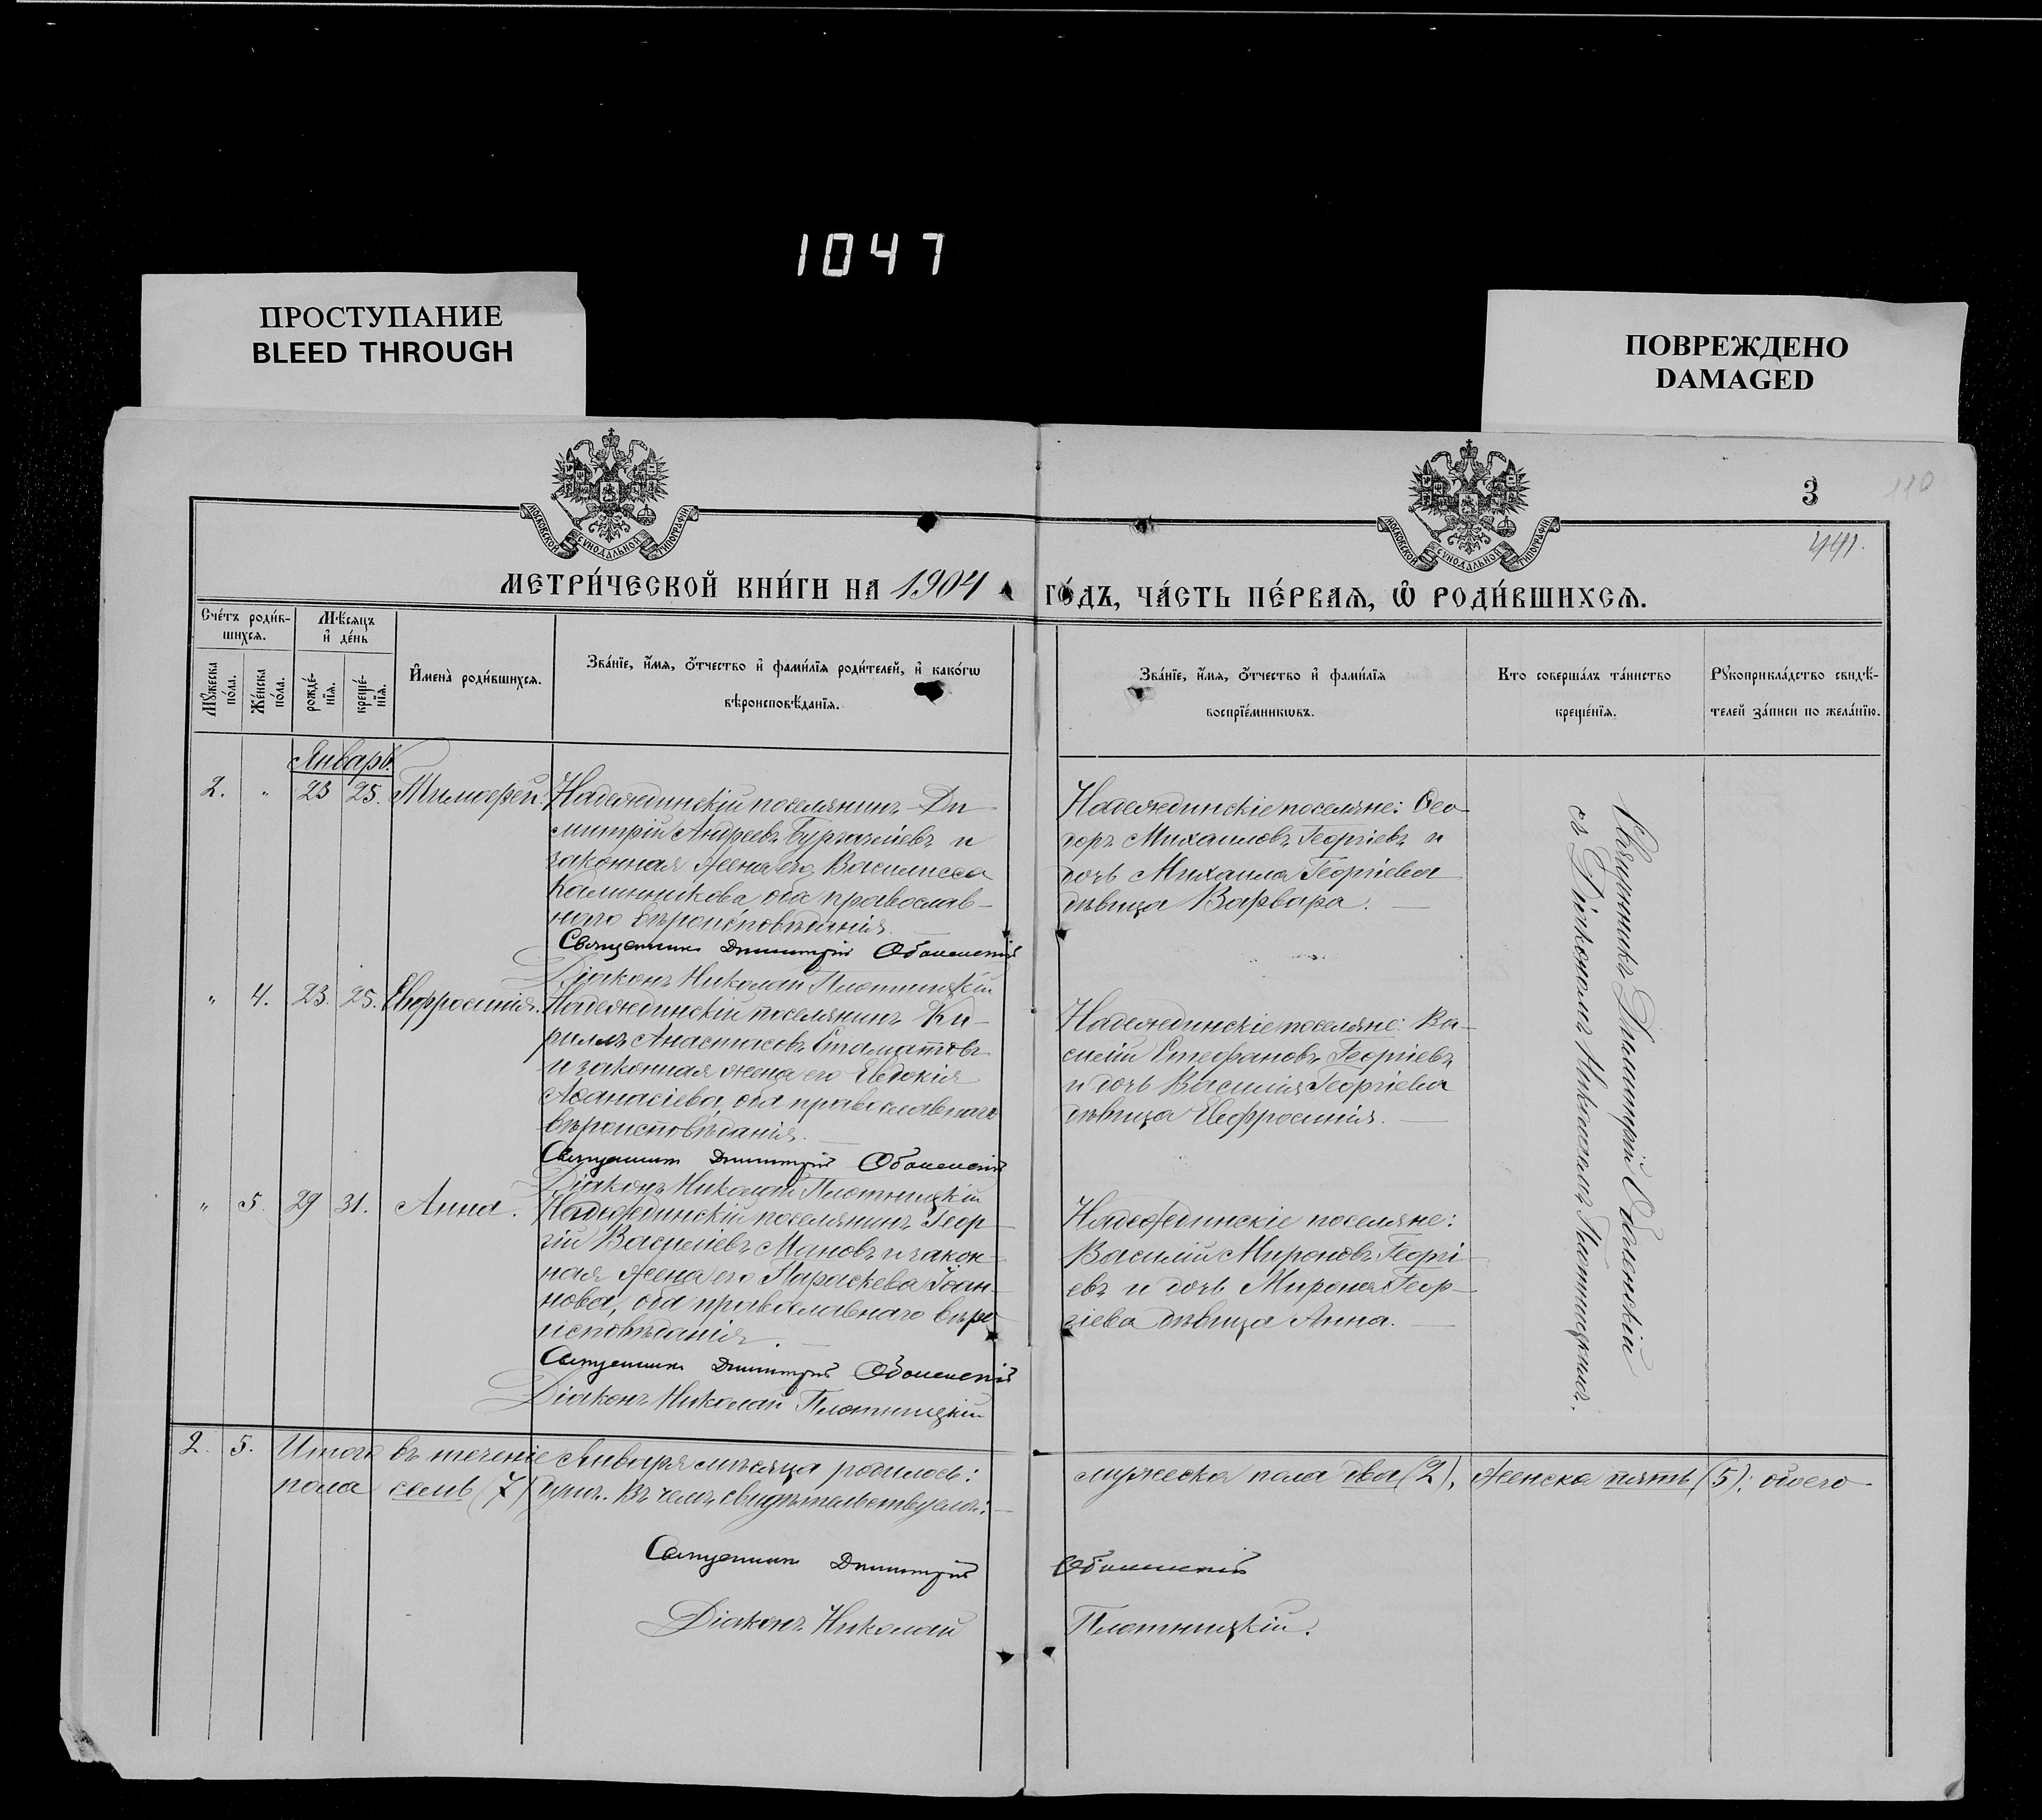 1047
ПРОСТУПАНИЕ
BLEED THROUGH
ПОВРЕЖДЕНО
DAMAGED
МОСКОВСКОЙ СУНОДАЛЬНОЙ ТИПОГРАФІИ
МОСКОВСКОЙ СУНОДАЛЬНОЙ ТИПОГРАФІИ
3
110
441.
МЕТРИ́ЧЕСКОЙ КНИ́ГИ НА 1904 ГО́ДЪ, ЧА́СТЬ ПЕ́РВАѦ, Ѡ РОДИ́ВШИХСѦ.
Сче́тъ роди́в-
шихсѧ.
Мѣсѧцъ
и҆ де́нь
Мꙋжеска по́ла.
Же́нска по́ла.
рожде́-
нїѧ.
креще́-
нїѧ.
И҆мена̀ роди́вшихсѧ.
Зва́нїе, и҆́мѧ, ѻ҆́тчество и҆ фами́лїѧ роди́телей, и҆ како́гѡ
вѣроисповѣ́данїѧ.
Зва́нїе, и҆́мѧ, ѻ҆́тчество и҆ фами́лїѧ
воспрїе́мникѡвъ.
Кто соверша́лъ та́инство
креще́нїѧ.
Рꙋкоприкла́дство свидѣ́-
телей за́писи по жела́нїю.
Январь.
2. " 23 25. Тимофей. Надеждинскій поселянинъ Ди-
митрій Андреевъ Бургажіевъ и
законная жена его Василисса
Калинникова, оба православ-
наго вѣроисповѣданія.
Священникъ Димитрій Оболенскій
Діаконъ Николай Плотницкій
Надеждинскіе поселяне: Ѳео-
доръ Михаиловъ Георгіевъ и
дочь Михаила Георгіева
дѣвица Варвара.
Священникъ Димитрій Оболенскій
съ Діакономъ Николаемъ Плотницкимъ.
" 4. 23. 25. Евфросинія. Надеждинскій поселянинъ Ки-
риллъ Анастасовъ Стаматовъ
и законная жена его Евдокія
Аѳанасіева, оба православнаго
вѣроисповѣданія.
Священникъ Димитрій Оболенскій
Діаконъ Николай Плотницкій
Надеждинскіе поселяне: Ва-
силій Стефановъ Георгіевъ
и дочь Василія Георгіева
дѣвица Евфросинія.
" 5. 29 31. Анна. Надеждинскій поселянинъ Геор-
гій Василіевъ Мановъ и закон-
ная жена его Параскева Іоан-
нова, оба православнаго вѣро-
исповѣданія.
Священникъ Димитрій Оболенскій
Діаконъ Николай Плотницкій
Надеждинскіе поселяне:
Василій Мироновъ Георгі-
евъ и дочь Мирона Геор-
гіева дѣвица Анна.
2. 5. Итого въ теченіе Января мѣсяца родилось: мужеска пола два (2), женска пять (5); обоего
пола семь (7) душъ. Въ чемъ свидѣтельствуемъ:
Священникъ Димитрій Оболенскій
Діаконъ Николай Плотницкій.